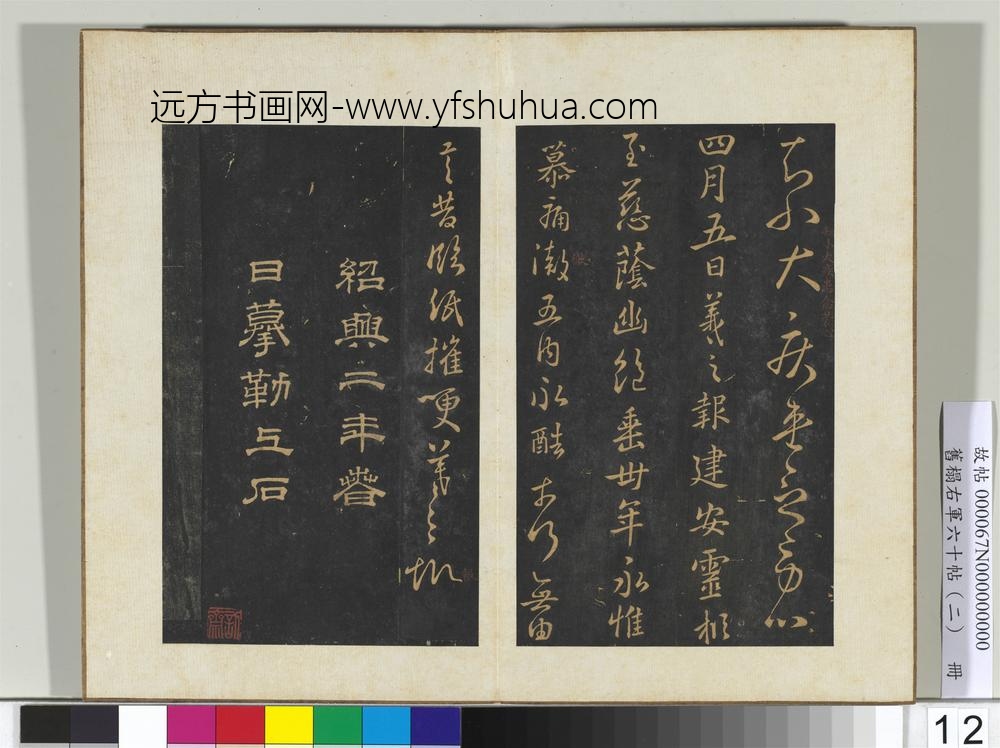 远方书画网-www.yfshuhua.com
大疾患念勞心
四月五日羲之報建安靈柩
至慈蔭幽絕垂卅年永惟
慕痛澈五內永酷奈何無由
言臨紙摧哽羲之報
紹興二年萅
日摹勒上石
故帖 000067N000000000
舊榻右軍六十帖（二） 冊
12